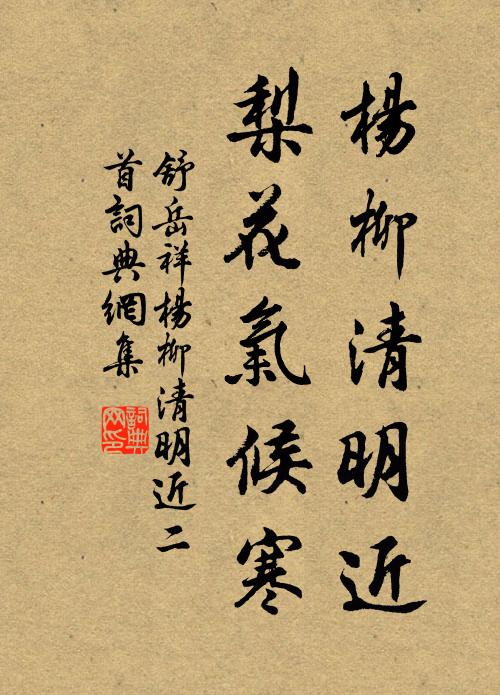 楊柳清明近
梨花氣候寒
舒岳祥楊柳清明近二
首詞典網集
詞典網印